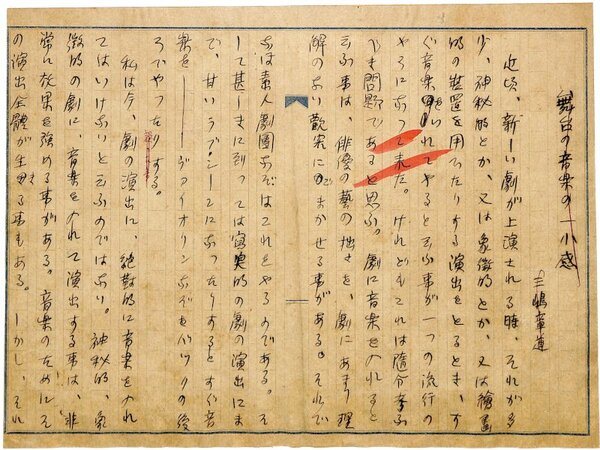 舞台の音楽の一小感
三嶋章道
近頃、新しい劇が上演される時、それが多
少、神秘的とか、又は象徴的とか、又は繪画
的の装置を用ゐたりする演出をとるとき、す
ぐ音楽をいれてやると云ふ事が一つの流行の
やうになつて来た。けれどもこれは随分考ふ
べき問題であると思ふ。劇に音楽を入れると
云ふ事は、俳優の藝の拙さを、劇にあまり理
解のない観客にごまかせる事がある。それで
なほ素人劇團なぞはこれをやるのである。そ
して甚しきに到つては写実的の劇の演出にま
で、甘いラブシーンになつたりするとすぐ音
楽を——ヴァイオリンなぞをバックの後
ろでやつたりする。
私は今、劇の演出に、絶対的に音楽を入れ
てはいけないと云ふのではない。神秘的、象
徴的の劇に、音楽を入れて演出する事は、非
常に効果を強める事がある。音楽のためにそ
の演出全体が生きる事もある。しかし、それ